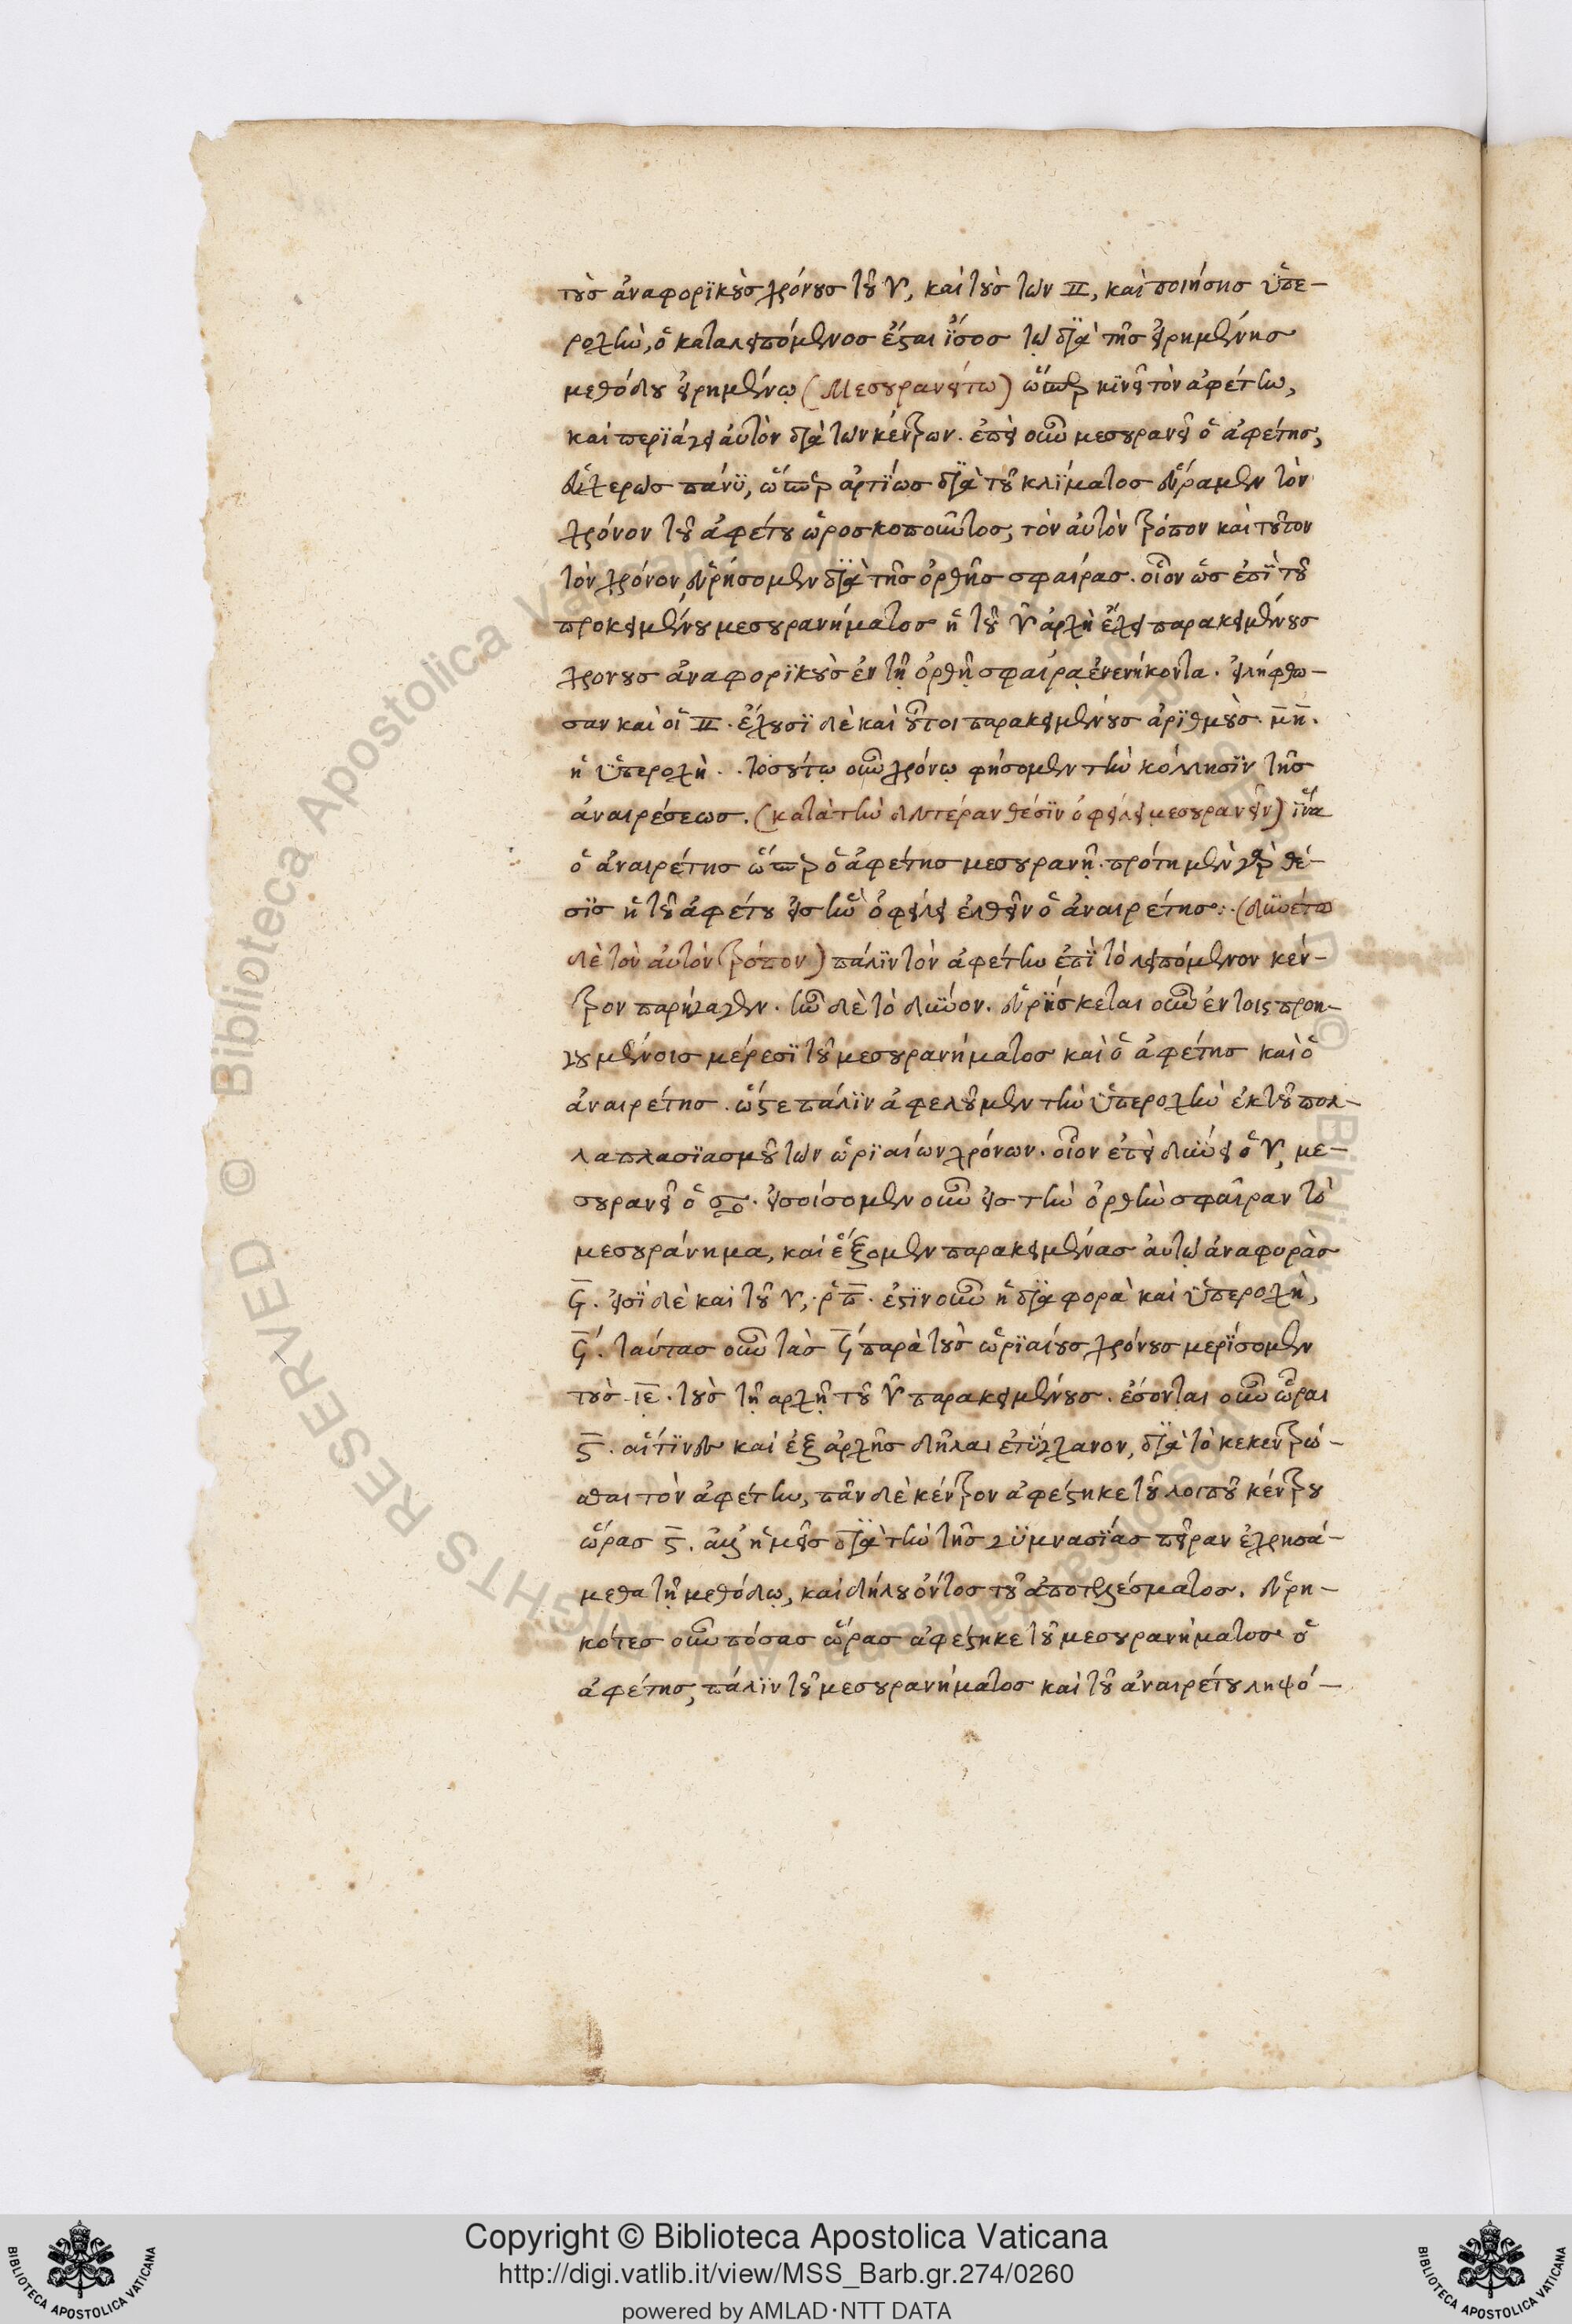 τοὺς ἀναφορϊκοὺς χρόνους τοῦ ♈, καὶ τοὺς τῶν ♊, καὶ ποιήσης ὑπε-
ροχὴν, ὁ καταλειπόμενος ἔσται ἴσος τῷ διὰ τῆς εἰρημένης
μεθόδου εἰρημένῳ (Μεσουρανείτω) ὥσπερ κϊνεῖ τὸν ἀφέτην,
καὶ περϊάγει αὐτὸν διὰ τῶν κέντρων. ἐπεὶ οὖν μεσουρανεῖ ὁ ἀφέτης,
εὐχερῶς πάνϋ, ὥσπερ ἀρτίως διὰ τοῦ κλίματος εὕραμεν τὸν
χρόνον τοῦ ἀφέτου ὡροσκοποῦντος, τὸν αὐτὸν τρόπον καὶ τοῦτον
τὸν χρόνον εὑρήσομεν διὰ τῆς ὀρθῆς σφαίρας. οἷον ὡς ἐπὶ τοῦ
προκειμένου μεσουρανήματος ἡ τοῦ ♈ ἀρχὴ ἔχει παρακειμένους
χρόνους ἀναφορϊκοὺς ἐν τῇ ὀρθῇ σφαίρᾳ ἐνενήκοντα. εἰλήφθω-
σαν καὶ οἱ ♊. ἔχουσϊ δὲ καὶ οὗτοι παρακειμένους ἀρϊθμοὺς. μη.
ἡ ὑπεροχὴ. . τοσούτῳ οὖν χρόνῳ φήσομεν τὴν κόλλησϊν τῆς
ἀναιρέσεως. (κατὰ τὴν δευτέραν θέσϊν ὀφείλει μεσουρανεῖν) ἵνα
ὁ ἀναιρέτης ὥσπερ ὁ ἀφέτης μεσουρανῇ. πρότη μὲν γὰρ θέ-
σϊς ἡ τοῦ ἀφέτου εἰς ἣν ὀφείλει ἐλθεῖν ὁ ἀναιρέτης. (δυνέτω
δὲ τὸν αὐτὸν τρόπον) πάλϊν τὸν ἀφέτην ἐπὶ τὸ λειπόμενον κέν-
τρον παρήγαγεν. ἦν δὲ τὸ δῦνον. εὑρίσκεται οὖν ἐν τοῖς προη-
γουμένοις μέρεσϊ τοῦ μεσουρανήματος καὶ ὁ ἀφέτης καὶ ὁ
ἀναιρέτης. ὥστε πάλϊν ἀφελοῦμεν τὴν ὑπεροχὴν ἐκ τοῦ πολ-
λαπλασϊασμοῦ τῶν ὡρϊαίων χρόνων. οἷον ἐπεὶ δύνει ὁ ♈, με-
σουρανεῖ ὁ ♋. εἰσοίσομεν οὖν εἰς τὴν ὀρθὴν σφαῖραν τὸ
μεσουράνημα, καὶ ἕξομεν παρακειμένας αὐτῷ ἀναφορὰς
ϙ. εἰσὶ δὲ καὶ τοῦ ♈, ρπ. ἐστϊν οὖν ἡ διαφορὰ καὶ ὑπεροχὴ,
ϙ. ταύτας οὖν τὰς ϙ παρὰ τοὺς ὡρϊαίους χρόνους μερίσομεν
τοὺς ιε. τοὺς τῇ ἀρχῇ τοῦ ♈ παρακειμένους. ἔσονται οὖν ὧραι
ϛ. αἵτϊνες καὶ ἐξ ἀρχῆς δῆλαι ἐτύγχανον, διὰ τὸ κεκεντρῶ-
σθαι τὸν ἀφέτην, πᾶν δὲ κέντρον ἀφέστηκε τοῦ λοιποῦ κέντρου
ὥρας ϛ. ἀλλ' ἡμεῖς διὰ τὴν τῆς γϋμνασϊας πεῖραν ἐχρησά-
μεθα τῇ μεθόδῳ, καὶ δήλου ὄντος τοῦ ἀποτελέσματος. εὑρη-
κότες οὖν πόσας ὥρας ἀφέστηκε τοῦ μεσουρανήματος ὁ
ἀφέτης, πάλϊν τοῦ μεσουρανήματος καὶ τοῦ ἀναιρέτου ληψό-
Copyright © Biblioteca Apostolica Vaticana
http://digi.vatlib.it/view/MSS_Barb.gr.274/0260
powered by AMLAD·NTT DATA
BIBLIOTECA APOSTOLICA VATICANA
BIBLIOTECA APOSTOLICA VATICANA